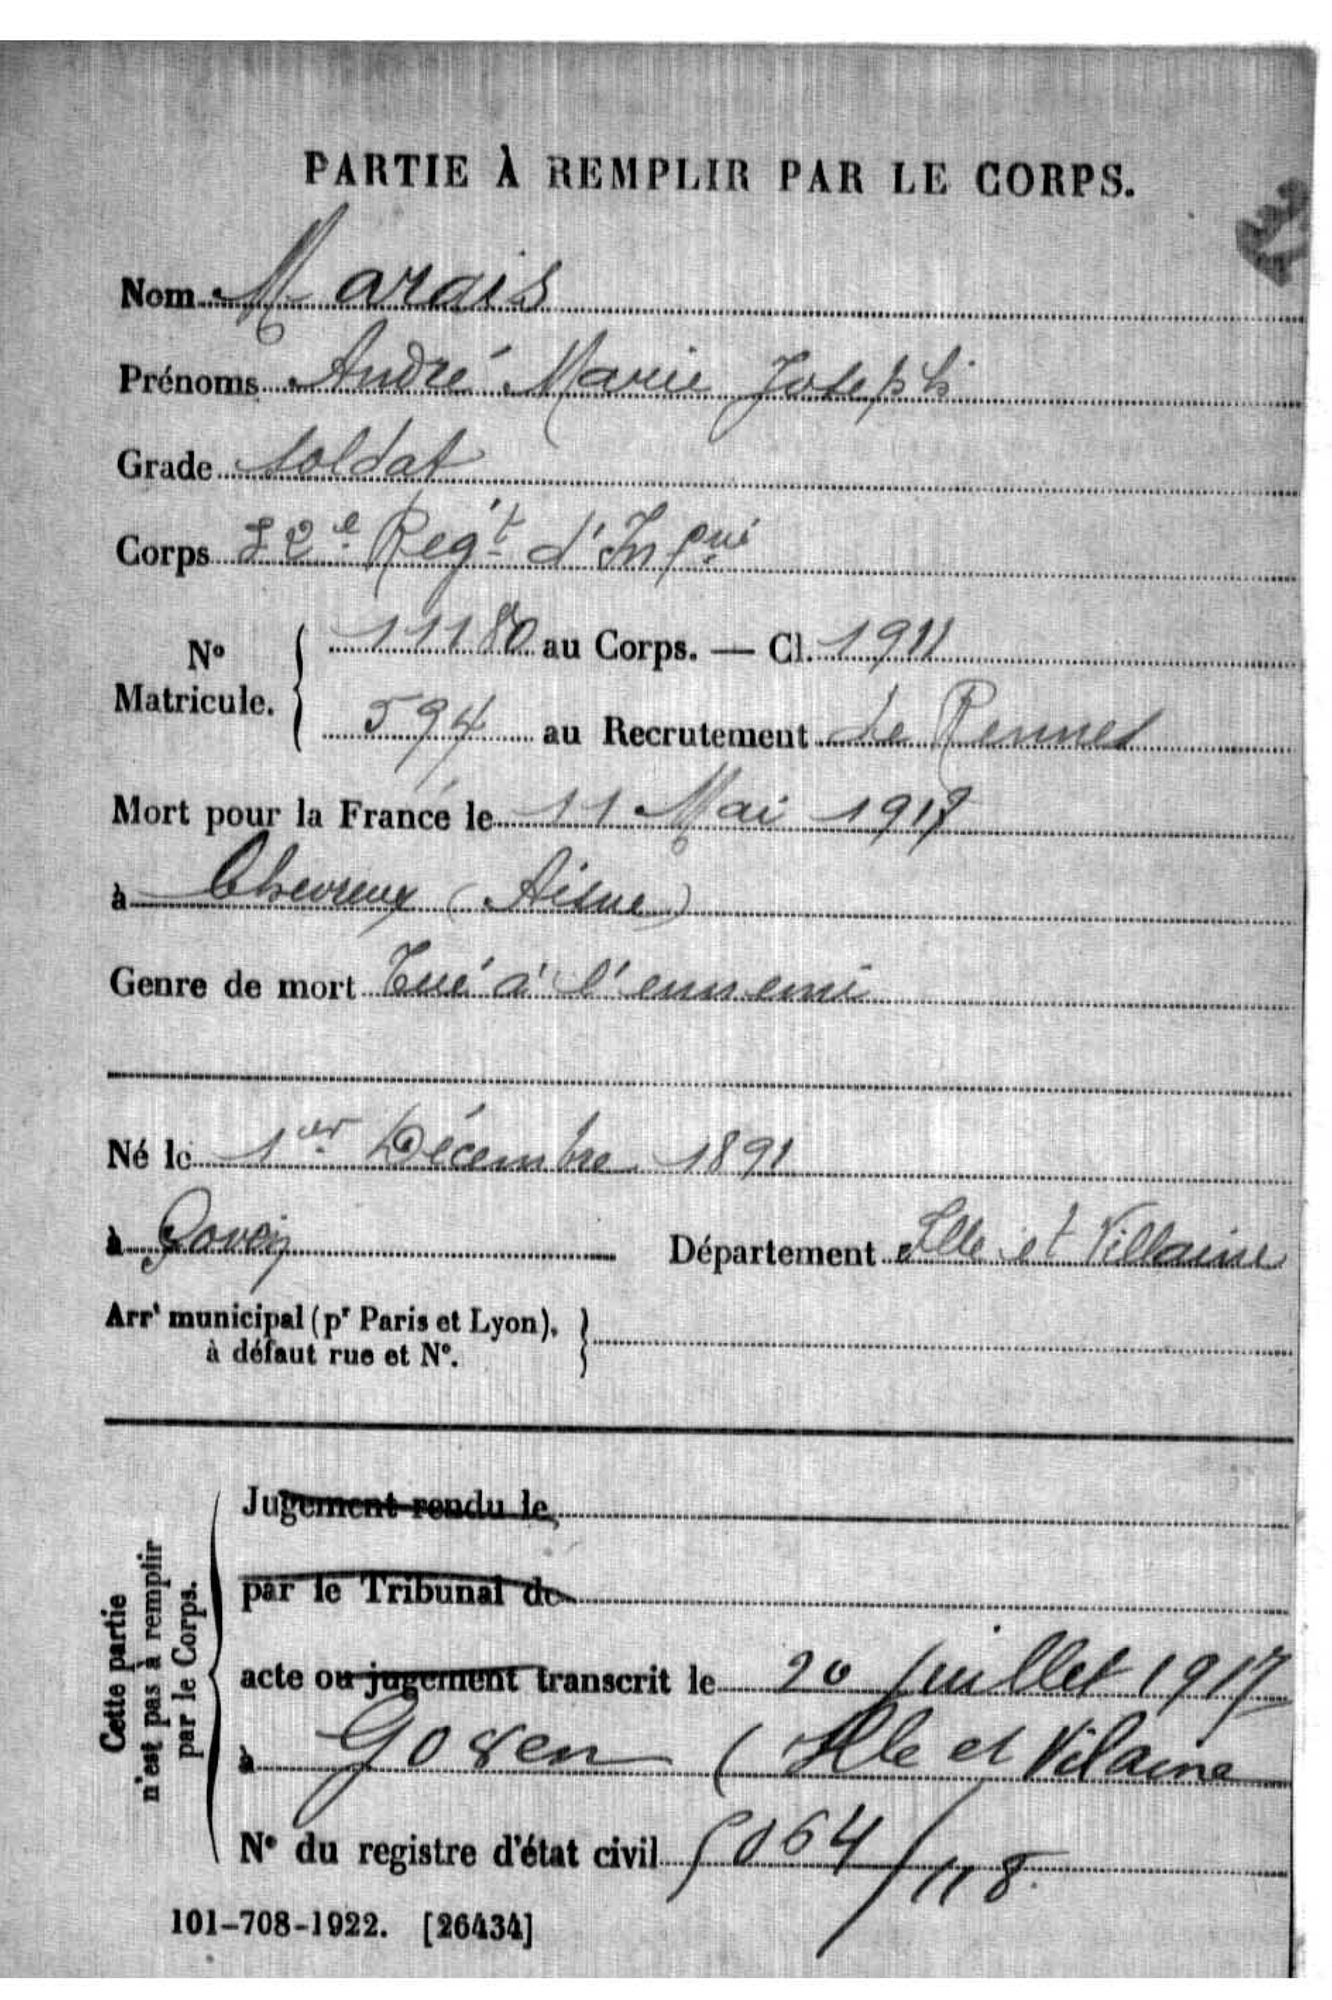 PARTIE À REMPLIR PAR LE CORPS.
Nom Marais
Prénoms André Marie Joseph
Grade soldat
Corps 32e Regt d'Infrie
No Matricule. 11180 au Corps. — Cl. 1911
594 au Recrutement de Rennes
Mort pour la France le 11 Mai 1917
à Chevreux (Aisne)
Genre de mort Tué à l'ennemi
Né le 1er Décembre 1891
à Goven Département Ille et Villaine
Arrt municipal (pr Paris et Lyon),
à défaut rue et No.
Cette partie
n'est pas à remplir
par le Corps.
Jugement rendu le
par le Tribunal de
acte ou jugement transcrit le 20 juillet 1917
à Goven (Ille et Vilaine
No du registre d'état civil 5064/118.
101-708-1922. [26434]